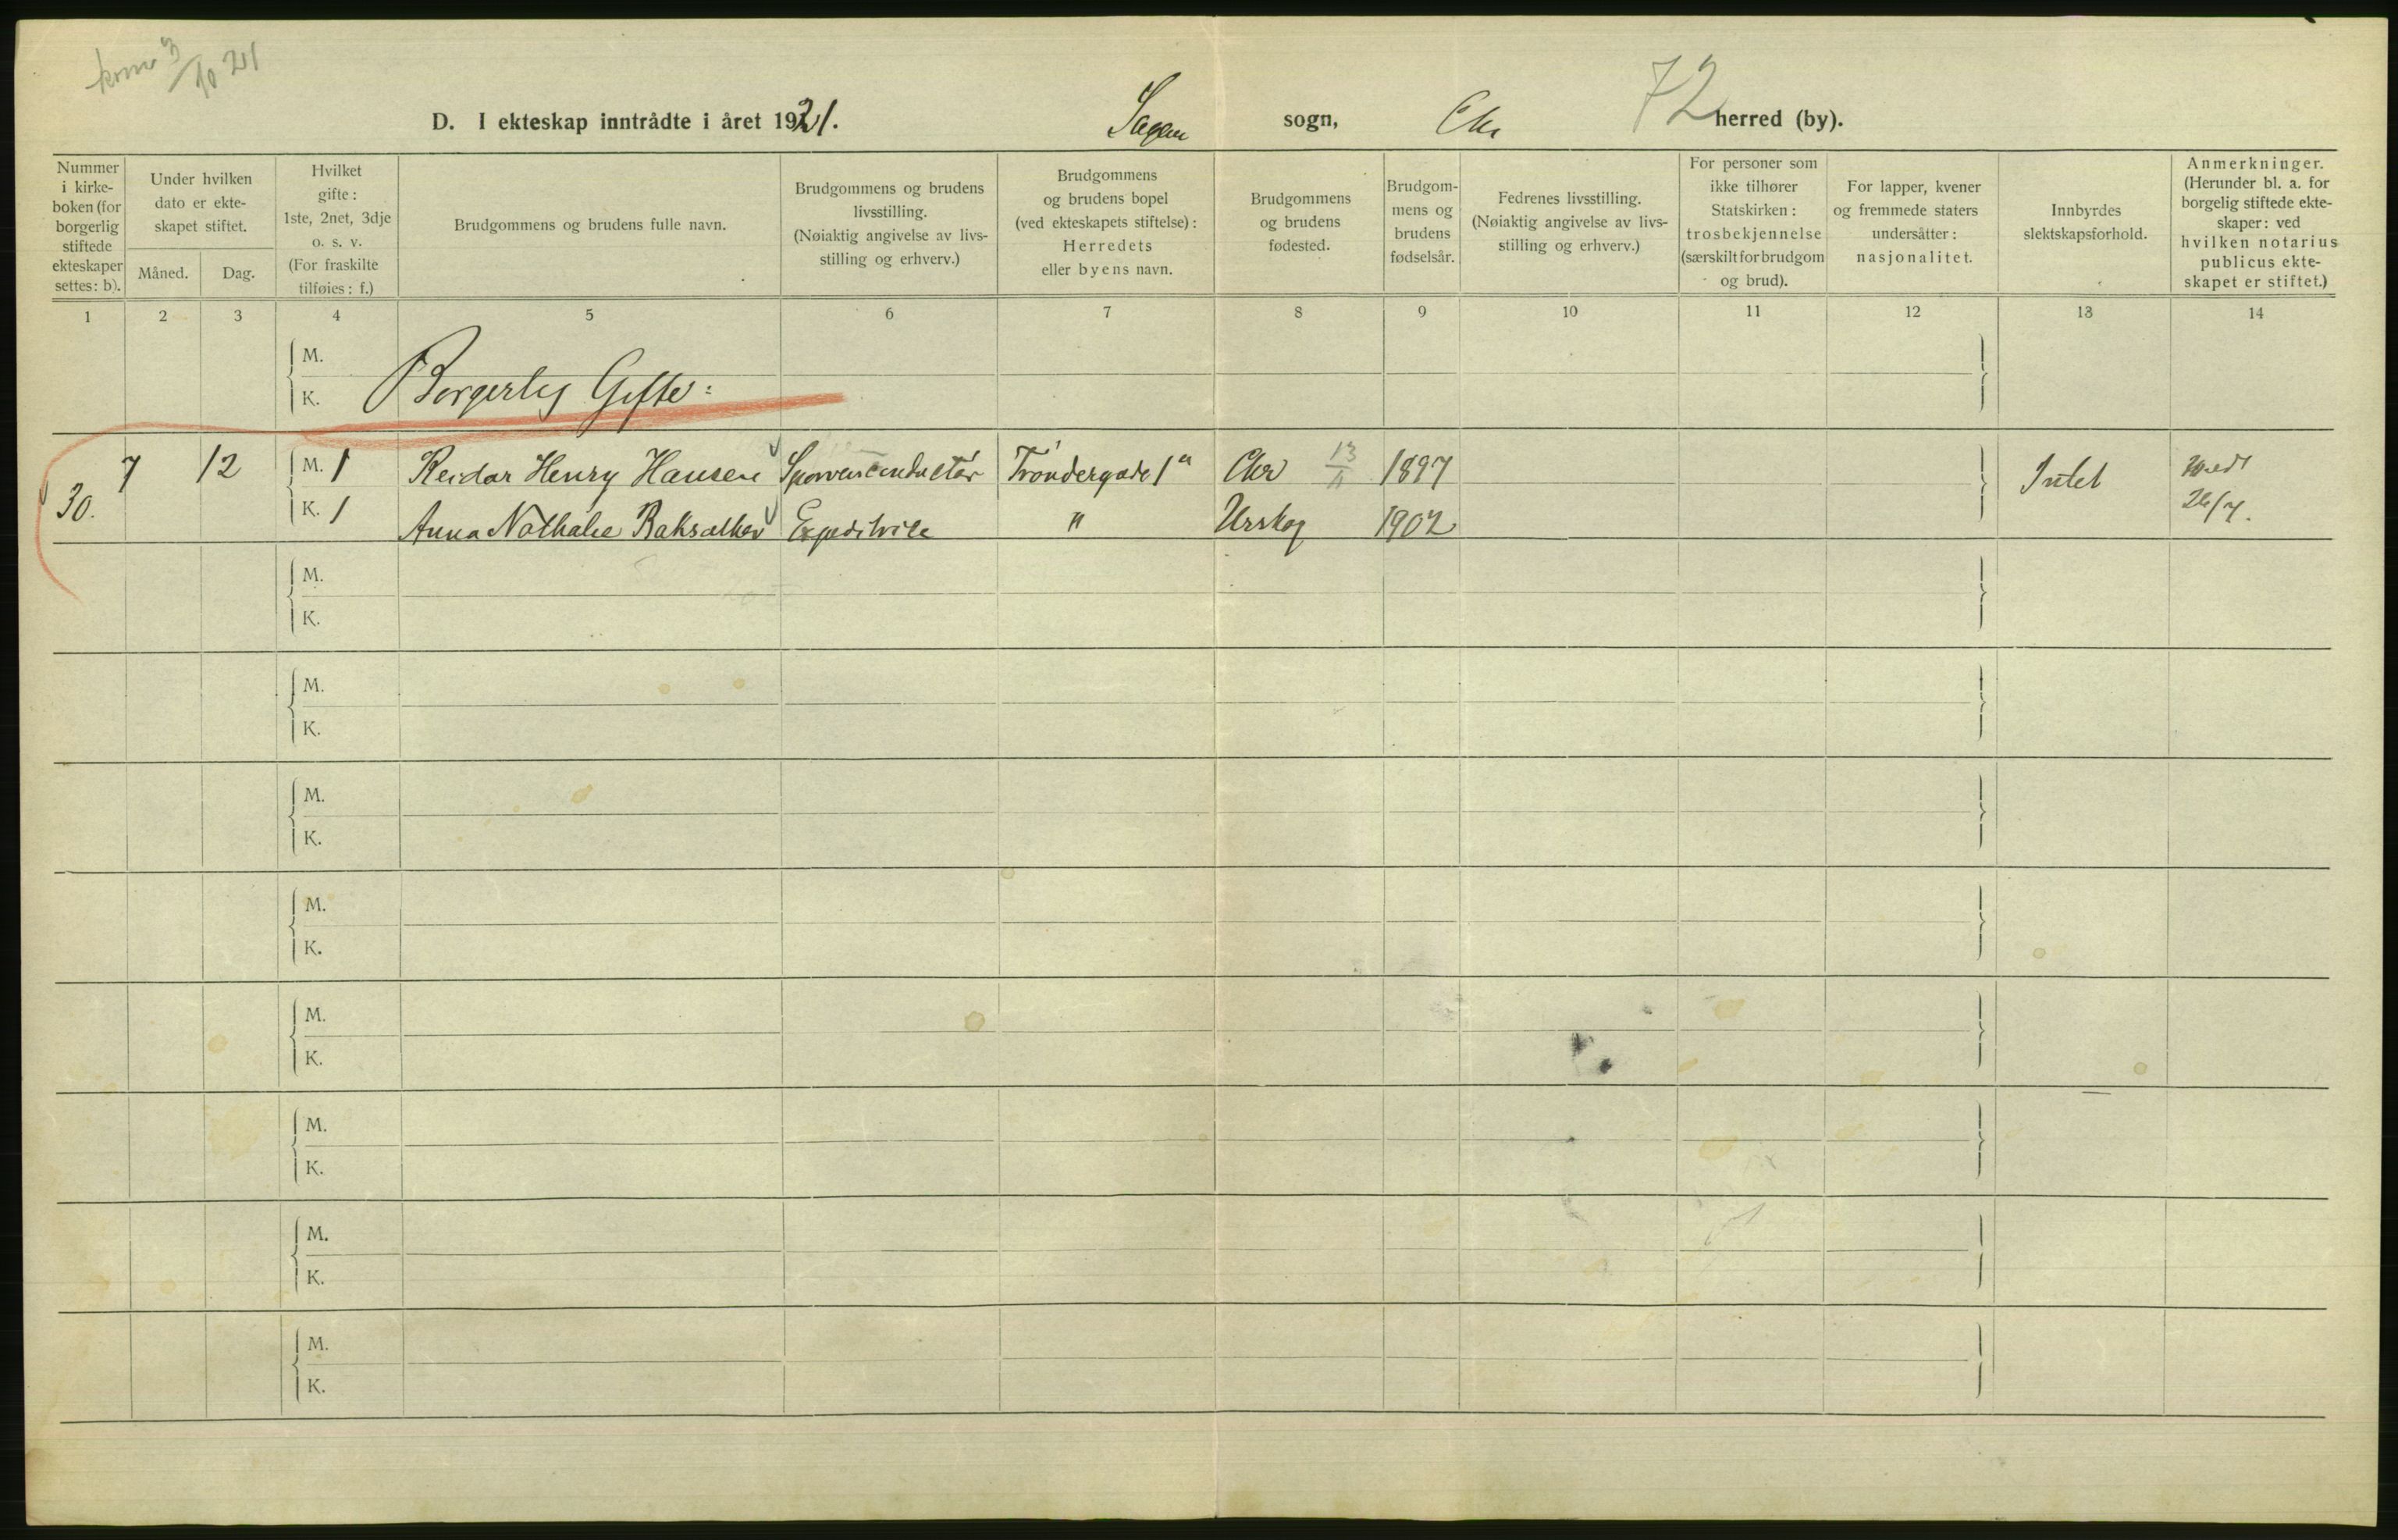 kom 3/10 21
72
D. I ekteskap inntrådte i året 1921. Sagene sogn, Chr herred (by).
Nummer i kirke-boken (for borgerlig stiftede ekteskaper settes: b).
Under hvilken dato er ekte-skapet stiftet.
Måned.
Dag.
Hvilket gifte: 1ste, 2net, 3dje o. s. v. (For fraskilte tilføies: f.)
Brudgommens og brudens fulle navn.
Brudgommens og brudens livsstilling. (Nøiaktig angivelse av livs-stilling og erhverv.)
Brudgommens og brudens bopel (ved ekteskapets stiftelse): Herredets eller byens navn.
Brudgommens og brudens fødested.
Brudgom-mens og brudens fødselsår.
Fedrenes livsstilling. (Nøiaktig angivelse av livs-stilling og erhverv.)
For personer som ikke tilhører Statskirken: trosbekjennelse (særskilt for brudgom og brud).
For lapper, kvener og fremmede staters undersåtter: nasjonalitet.
Innbyrdes slektskapsforhold.
Anmerkninger. (Herunder bl. a. for borgelig stiftede ekte-skaper: ved hvilken notarius publicus ekte-skapet er stiftet.)
1 2 3 4 5 6 7 8 9 10 11 12 13 14
M.
K.
Borgerlig Gifte:
30. 7 12
M. 1 Reidar Henry Hansen Sporveisconductør Trøndergade 1 Chr 13/11 1897 Intet
K. 1 Anna Nathalie Expeditrice " Urskog 1902
M.
K.
M.
K.
M.
K.
M.
K.
M.
K.
M.
K.
M.
K.
M.
K.